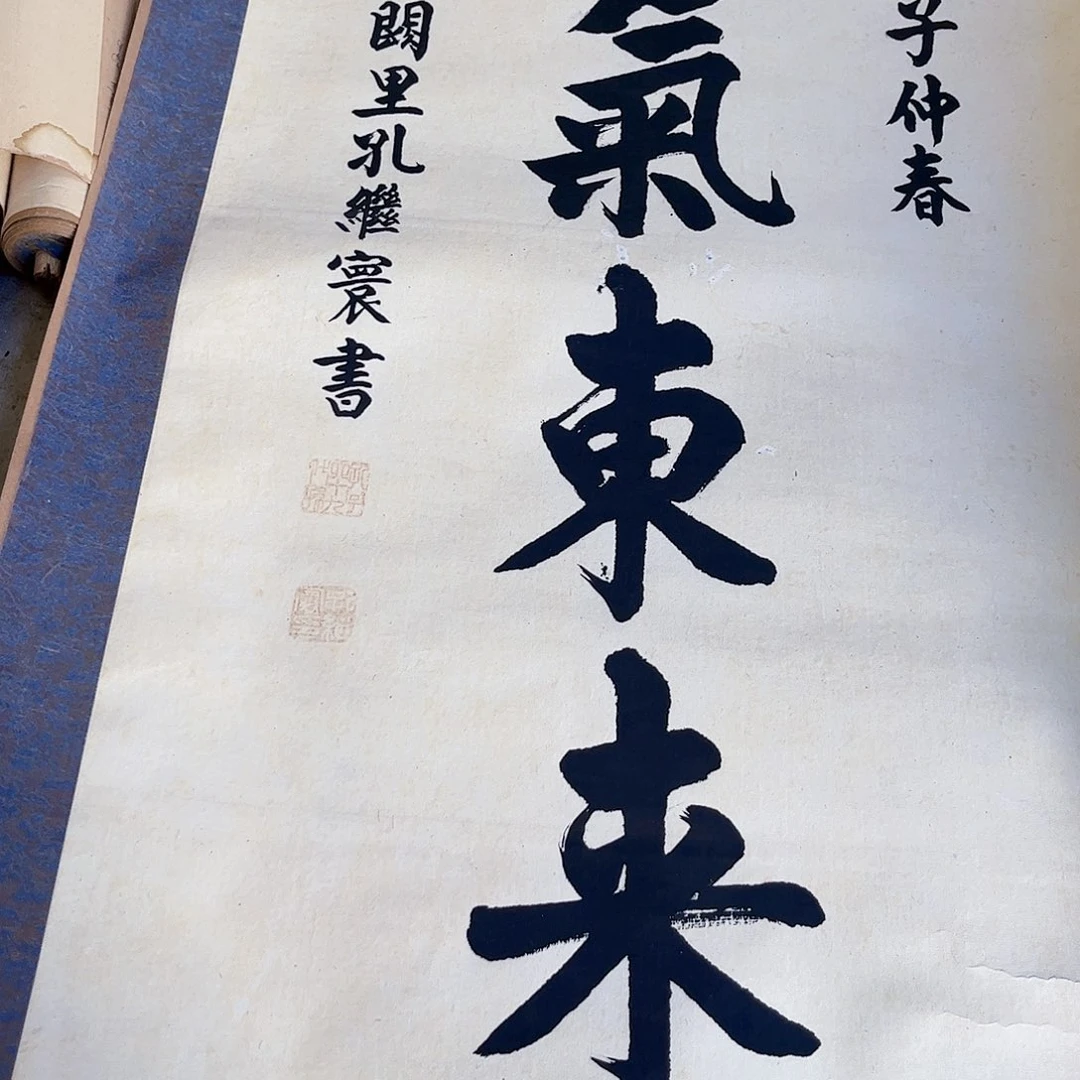 子仲春
氣東来
闕里孔繼寰書